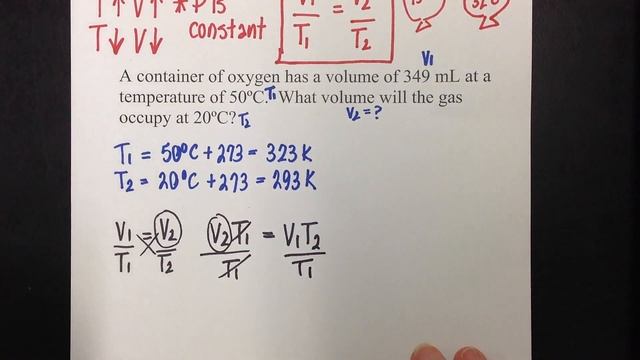 T↑ V↑ * P is
T↓ V↓ constant
V1/T1 = V2/T2
V1
A container of oxygen has a volume of 349 mL at a
temperature of 50ºC. T1 What volume will the gas
occupy at 20ºC? T2 V2 = ?
T1 = 50ºC + 273 = 323 K
T2 = 20ºC + 273 = 293 K
V1/T1 = V2/T2 V2T1/T1 = V1T2/T1